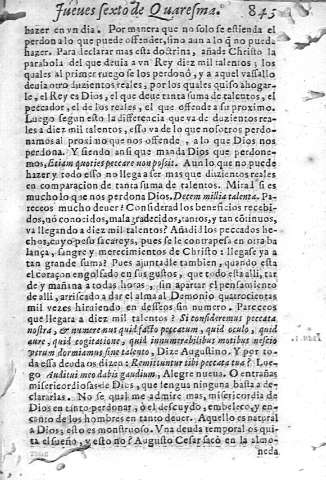 Jueues sexto de Quaresma. 845
hazer en vn dia. Por manera que no solo se estienda el
perdon a lo que puede offender, sino aun a lo q̃ no puede
hazer. Para declarar mas esta doctrina, añade Christo la
parabola del que deuia a vn Rey diez mil talentos; los
quales al primer ruego se los perdonó, y a aquel vassallo
deuia otro duzientos reales, por los quales quiso ahogar-
le, el Rey es Dios, el que deue tanta suma de talentos, el
peccador, el de los reales, el que offende a su proximo.
Luego segun esto la differencia que va de duzientos rea-
les a diez mil talentos, esso va de lo que nosotros perdo-
namos al proximo que nos offende, a lo que Dios nos
perdona. Y siendo ansi que manda Dios que perdone-
mos, Etiam quoties peccare non possit. Aun lo que no puede
hazer y todo esso no llega a ser mas que duzientos reales
en comparacion de tanta suma de talentos. Mirá si es
mucho lo que nos perdona Dios, Decem millia talenta. Pa-
receos mucho deuer? Considerad los beneficios recebi-
dos, nó conocidos, mal agradecidos, tantos, y tan cõtinuos,
va llegando a diez mil talentos? Añadi los peccados he-
chos, cuyo peso sacareys, pues se le contrapesa en otra ba
lança, sangre y merecimientos de Christo: llegase ya a
tan grande suma? Pues ajuntadle tambien, quando esta
el coraçon engolfado en sus gustos, que todo esta alli, tar
de y mañana a todas horas, sin apartar el pensamiento
de alli, arriscado a dar el alma al Demonio quatrocientas
mil vezes hiriendo en desseos sin numero, Pareceos
que llegara a diez mil talentos? Si consideremus peccata
nostra, & numeremus quid facto peccatum, quid oculo, quid
aure, quid cogitatione, quid innumerabilibus motibus nescio
vtrum dormiamus sine talento, Dize Augustino. Y por to-
da essa deuda os dizen: Remittuntur tibi peccata tua? Lue-
go Auditui meo dabis gaudium, Alegre nueua. O entrañas
misericordiosas de Dios, que lengua ninguna basta a de-
clararlas. No se qual me admire mas, misericordia de
Dios en tanto perdonar, o el descuydo, embeleco, y en-
canto de los hombres en tanto deuer. Aquello es natural
a Dios, esto es monstruoso. Vna deuda temporal os qui-
ta el sueño, y esto no? Augusto Cesar sacò en la almo-
neda